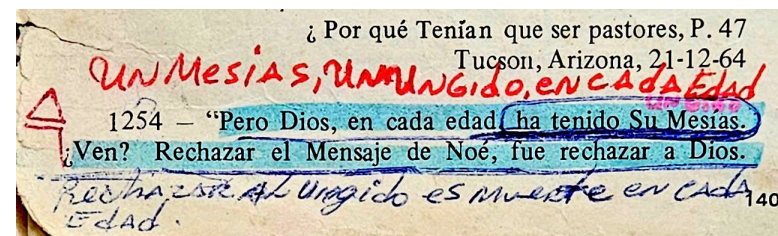 ¿ Por qué Tenían que ser pastores, P. 47
Tucson, Arizona, 21-12-64
UN MESÍAS, UN UNGIDO, EN CADA EDAD
1254 – “Pero Dios, en cada edad ha tenido Su Mesías.
¿Ven? Rechazar el Mensaje de Noé, fue rechazar a Dios.
Rechazar AL Ungido es muerte en CADA
EDAD.
140